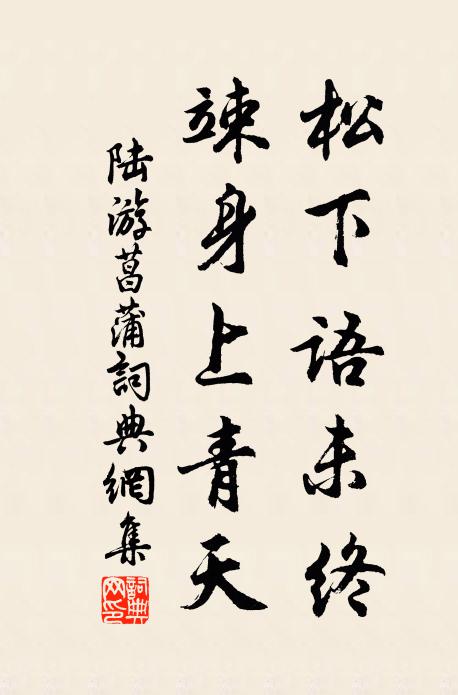 松下語未終
竦身上青天
陆游菖蒲詞典網集
詞典網印